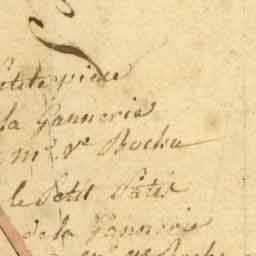 petite pièce
la Vannerie
mr Ve Rochu
le Petit Patis
de la Vannerie